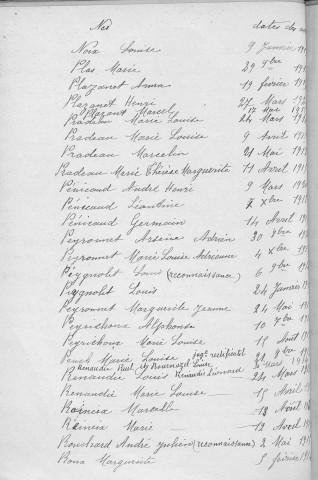 Née dates des
Noix Louise 9 Janvier 191
Plas Marie 29 9bre 191
Plazanet Anna 19 février 191
Plazanet Henri 27 Mars 191
Plazanet Marcel 17 Mai
Pradeau Marie Louise 24 Mars 191
Pradeau Marie Louise 9 Avril 191
Pradeau Marcelin 21 Mai 191
Pradeau Marie Thérèse Marguerite 11 Avril 191
Pénicaud André Henri 9 Mars 191
Pénicaud Léontine 7 xbre 191
Pénicaud Germain 14 Avril 191
Peyronnet Arsène Adrien 30 9bre 191
Peyronnet Marie Louise Adrienne 4 xbre 191
Peygnolot Louis (reconnaissance) 6 9bre 191
Peygnolot Louis 24 Janvier 191
Peyronnet Marguerite Jeanne 24 Mai 191
Peyrichoux Alphonse 10 7bre 191
Peyrichoux Marie Louise 15 Août 191
Peuch Marie Louise Jugt rectificatif 22 9bre 191
Renaudie
Renaudie Louis Renaudie Léonard 24 Mars 191
Renaudie Marie Louise 15 Avril 191
Raincix Marcelle 13 Août 191
Raincix Marie 12 Avril 191
Bouchard André Julien (reconnaissance) 2 Mai 191
Roux Marguerite 5 février 191